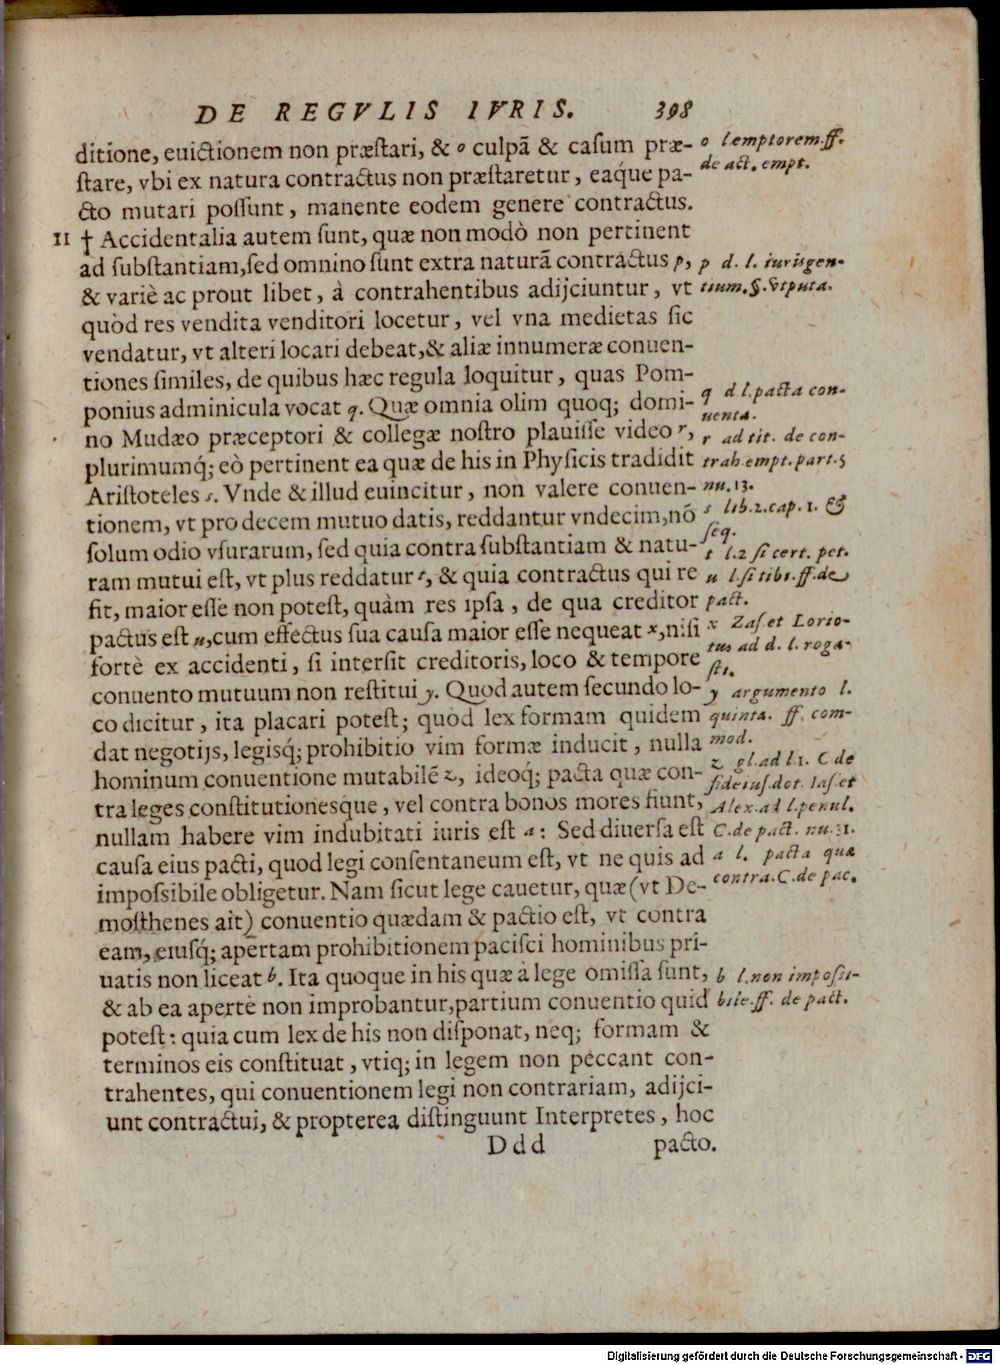 DE REGVLIS IVRIS. 398
ditione, euictionem non præstari, & o culpã & casum præ-
stare, vbi ex natura contractus non præstaretur, eaq́ue pa-
cto mutari possunt, manente eodem genere contractus.
11 † Accidentalia autem sunt, quæ non modò non pertinent
ad substantiam, sed omnino sunt extra naturã contractus p,
& variè ac prout libet, à contrahentibus adijciuntur, vt
quòd res vendita venditori locetur, vel vna medietas sic
vendatur, vt alteri locari debeat, & aliæ innumeræ conuen-
tiones similes, de quibus hæc regula loquitur, quas Pom-
ponius adminicula vocat q. Quæ omnia olim quoq; domi-
no Mudæo præceptori & collegæ nostro plauisse video r,
plurimumq́; eò pertinent ea quæ de his in Physicis tradidit
Aristoteles s. Vnde & illud euincitur, non valere conuen-
tionem, vt pro decem mutuo datis, reddantur vndecim, nõ
solum odio vsurarum, sed quia contra substantiam & natu-
ram mutui est, vt plus reddatur t, & quia contractus qui re
fit, maior esse non potest, quàm res ipsa, de qua creditor
pactus est u, cum effectus sua causa maior esse nequeat x, nisi
fortè ex accidenti, si intersit creditoris, loco & tempore
conuento mutuum non restitui y. Quod autem secundo lo-
co dicitur, ita placari potest; quòd lex formam quidem
dat negotijs, legisq́; prohibitio vim formæ inducit, nulla
hominum conuentione mutabilẽ z, ideoq́; pacta quæ con-
tra leges constitutionesque, vel contra bonos mores fiunt,
nullam habere vim indubitati iuris est a: Sed diuersa est
causa eius pacti, quod legi consentaneum est, vt ne quis ad
impossibile obligetur. Nam sicut lege cauetur, quæ (vt De-
mosthenes ait) conuentio quædam & pactio est, vt contra
eam, eiusq́; apertam prohibitionem pacisci hominibus pri-
uatis non liceat b. Ita quoque in his quæ à lege omissa sunt,
& ab ea apertè non improbantur, partium conuentio quid
potest: quia cum lex de his non disponat, neq; formam &
terminos eis constituat, vtiq; in legem non peccant con-
trahentes, qui conuentionem legi non contrariam, adijci-
unt contractui, & propterea distinguunt Interpretes, hoc
Ddd pacto.
o l.emptorem.ff.
de act. empt.
p d. l. iurisgen-
tium. §. vtputa.
q d l.pacta con-
uenta.
r ad tit. de con-
trah.empt.part.5
nu. 13.
s lib.2.cap. 1. &
seq.
t l.2 si cert. pet.
u l.si tibi.ff.de
pact.
x Zas.et Lorio-
tus ad d. l. roga-
sti.
y argumento l.
quinta. ff. com-
mod.
z gl.ad l.1. C de
fideius.dot. Ias.et
Alex.ad l.penul.
C.de pact. nu.31.
a l. pacta quæ
contra.C.de pac.
b l.non impossi-
bile.ff. de pact.
Digitalisierung gefördert durch die Deutsche Forschungsgemeinschaft - DFG